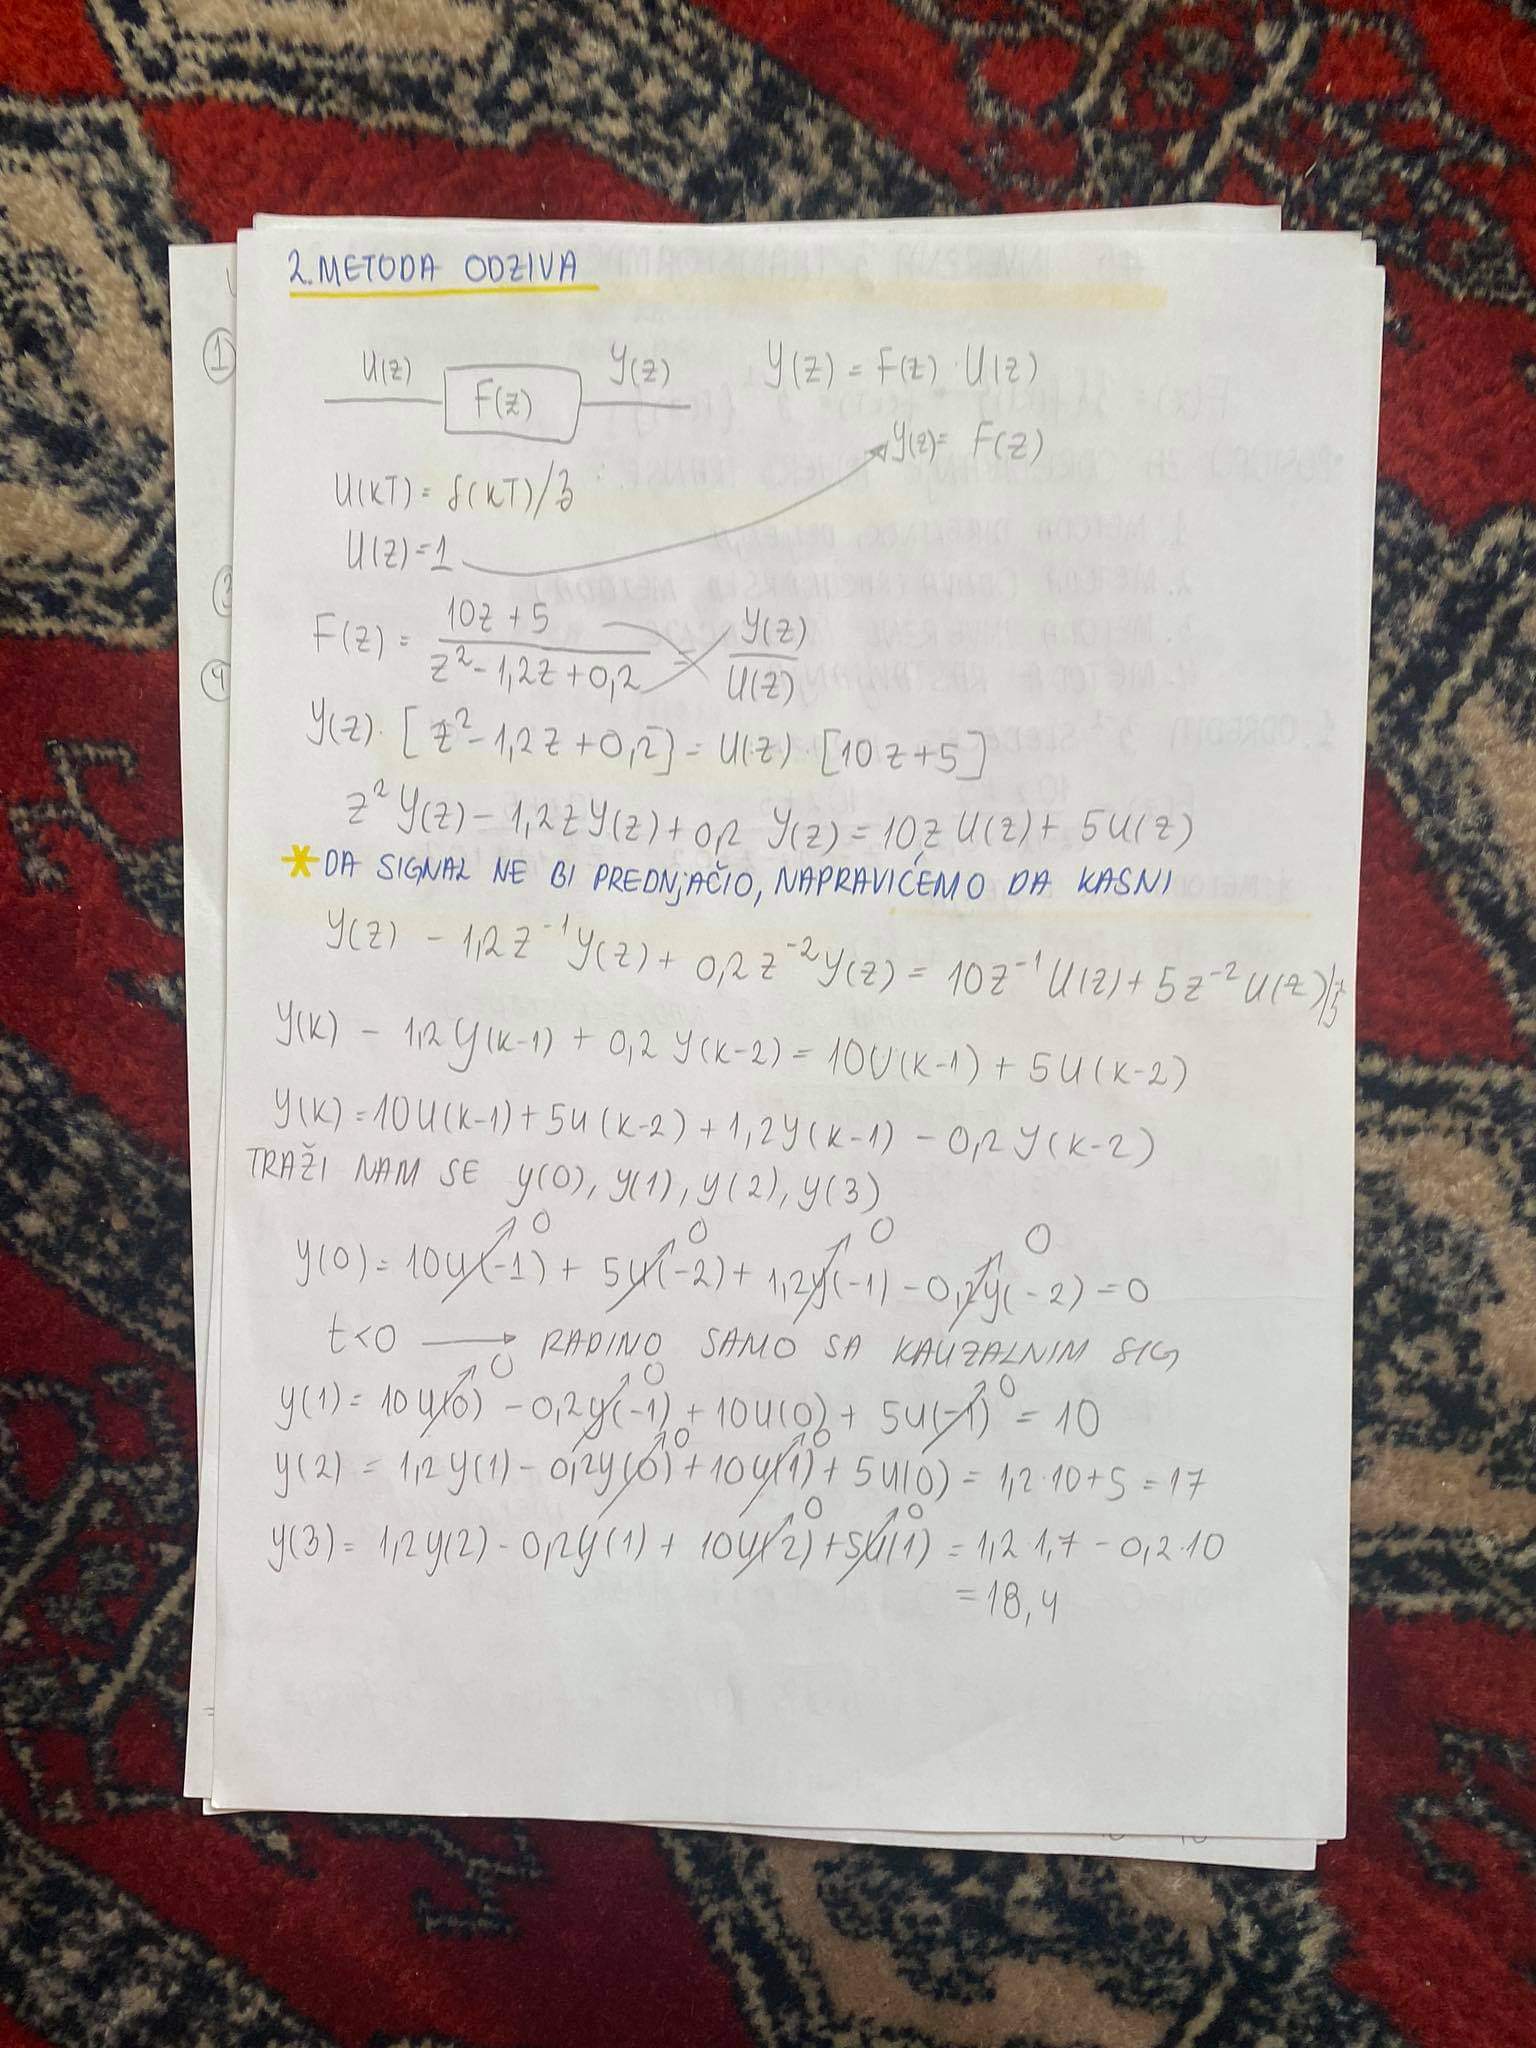 2. METODA ODZIVA
U(z) F(z) Y(z) Y(z) = F(z) · U(z)
Y(z) = F(z)
U(kT) = δ(kT)/z
U(z) = 1
F(z) = (10z + 5)/(z² - 1,2z + 0,2) = Y(z)/U(z)
Y(z) · [z² - 1,2z + 0,2] = U(z) · [10z + 5]
z² Y(z) - 1,2zY(z) + 0,2 Y(z) = 10z U(z) + 5U(z)
* DA SIGNAL NE BI PREDNJAČIO, NAPRAVIĆEMO DA KASNI
Y(z) - 1,2z⁻¹Y(z) + 0,2z⁻²Y(z) = 10z⁻¹U(z) + 5z⁻²U(z)/
Y(k) - 1,2Y(k-1) + 0,2Y(k-2) = 10U(k-1) + 5U(k-2)
Y(k) = 10U(k-1) + 5U(k-2) + 1,2Y(k-1) - 0,2Y(k-2)
TRAŽI NAM SE y(0), y(1), y(2), y(3)
0 0 0 0
y(0) = 10U(-1) + 5U(-2) + 1,2y(-1) - 0,2y(-2) = 0
t<0 → RADIMO SAMO SA KAUZALNIM SIG
0 0 0
y(1) = 10U(0) - 0,2y(-1) + 10U(0) + 5U(-1) = 10
0 0
y(2) = 1,2y(1) - 0,2y(0) + 10U(1) + 5U(0) = 1,2·10+5 = 17
0 0
y(3) = 1,2y(2) - 0,2y(1) + 10U(2) + 5U(1) = 1,2 1,7 - 0,2·10
= 18,4
1
3
4